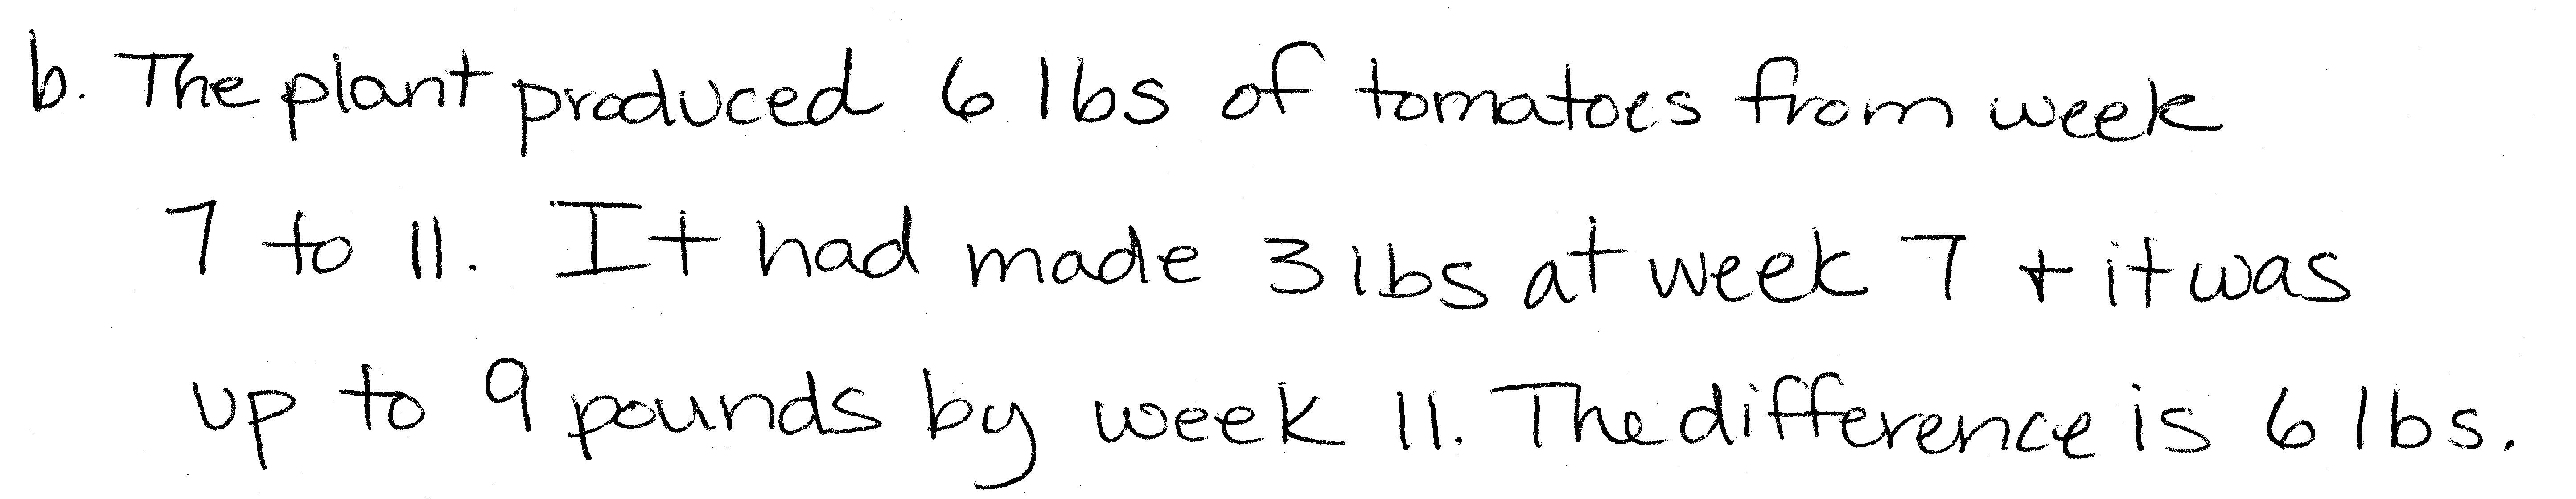 b. The plant produced 6 lbs of tomatoes from week
7 to 11. It had made 3 lbs at week 7 + it was
up to 9 pounds by week 11. The difference is 6 lbs.